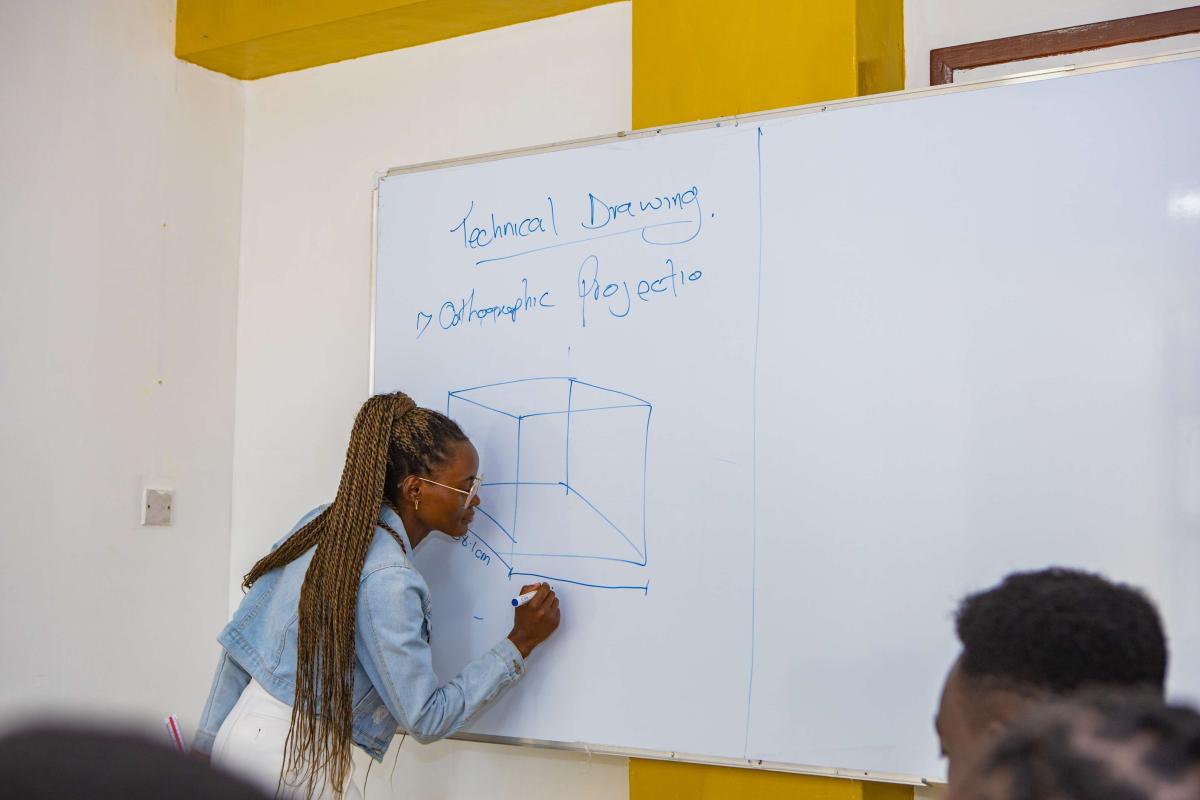 Technical Drawing.
Orthographic Projectio
8.1cm